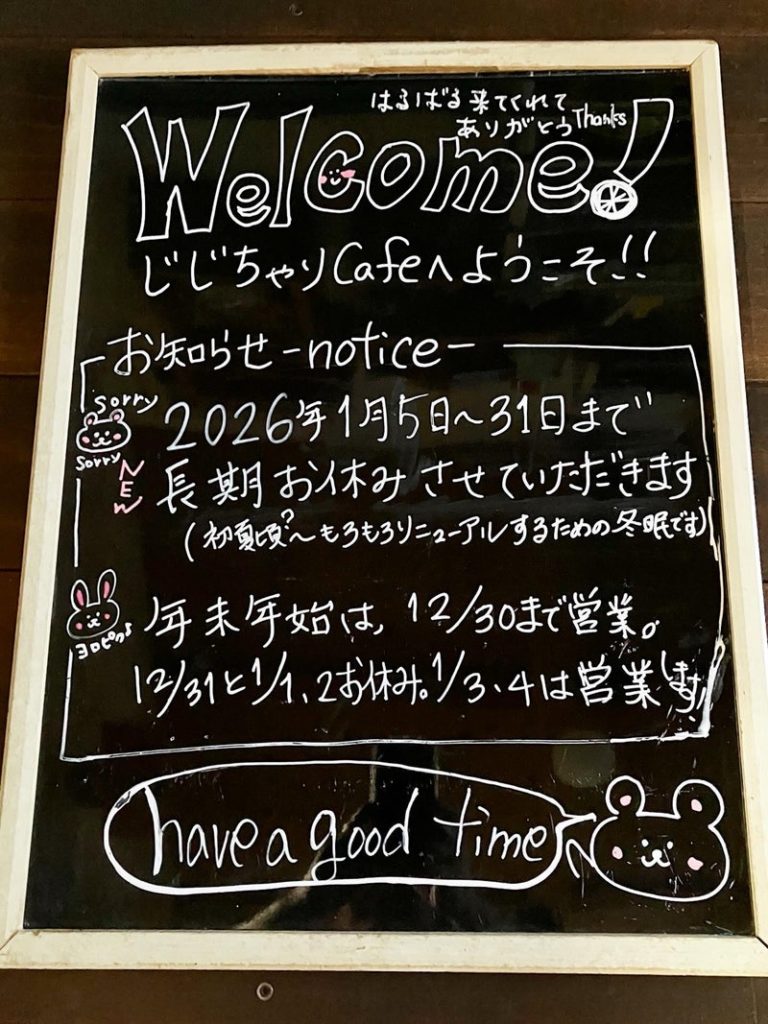 はるばる来てくれて
ありがとうThanks
Welcome!
じじちゃりCafeへようこそ!!
お知らせ-notice-
sorry
sorry
NEW
2026年1月5日〜31日まで
長期お休みさせていただきます
(初夏頃?〜もろもろリニューアルするための冬眠です)
ヨロピク♪
年末年始は、12/30まで営業。
12/31と1/1、2お休み。1/3、4は営業します
have a good time